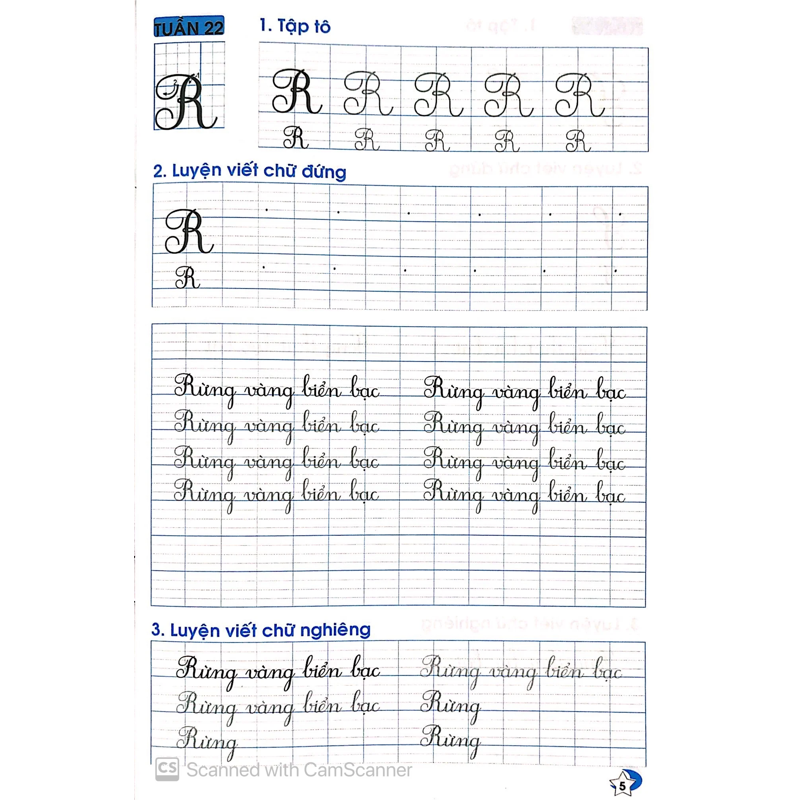 TUẦN 22
1. Tập tô
R
R R R R R
R R R R R
2. Luyện viết chữ đứng
R
R
Rừng vàng biển bạc Rừng vàng biển bạc
Rừng vàng biển bạc Rừng vàng biển bạc
Rừng vàng biển bạc Rừng vàng biển bạc
Rừng vàng biển bạc Rừng vàng biển bạc
3. Luyện viết chữ nghiêng
Rừng vàng biển bạc Rừng vàng biển bạc
Rừng vàng biển bạc Rừng
Rừng Rừng
CS Scanned with CamScanner
5